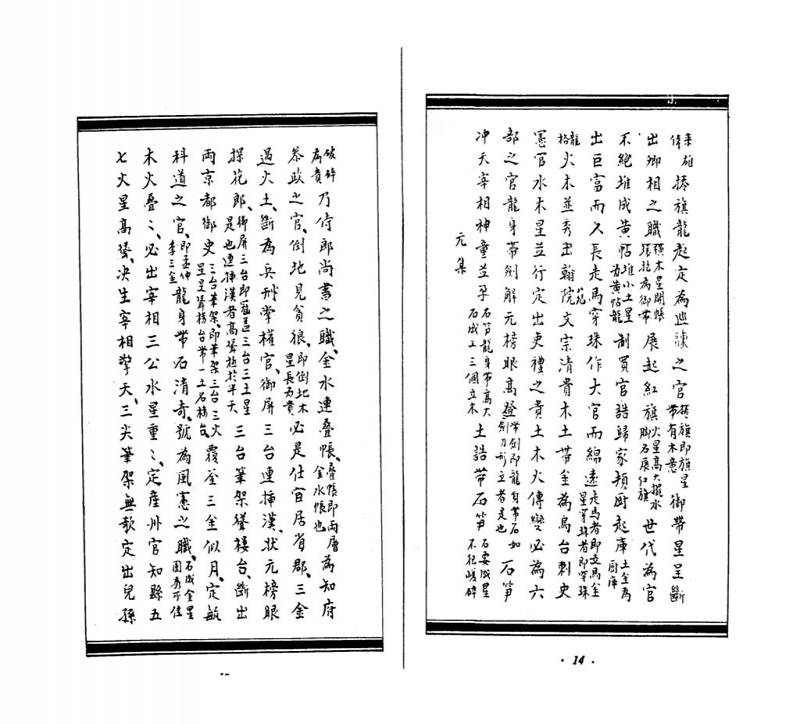 来雄偉搽旗龍起定為巡諫之官搽旗即旗星帶有木意御帶星呈斷
出卿相之職橫木星開帳張枝為御帶展起紅旗火星高大擺水脚石展红旗世代為官
不絕堆成黄帖堆小土星為黄帖龍制買官誥歸家頓厨起庫土金為厨庫
出巨富而久長走馬穿珠作大官而綿遠走馬者即立馬金星穿珠者即穿珠
龍格火木並秀出翰苑院文宗清貴木土帶金為烏台刺史
憲官水木星並行定出吏禮之貴土木火傳變必為六
部之官龍身帶劍解元榜眼高登帶倒即龍身帶石如劍刀形立者是也石笋
冲天宰相神童並孕石笋龍身帶高大石成工三個立木土誥帶石笋石要成星不犯嵯碎
元集
· 14 ·
破碎為貴乃侍郎尚書之職、金水連叠帳、叠帳即两層金水帳也為知府
叅政之官、倒地見貪狼、即倒地木星長為貴必是仕宦居省郡、三金
過火土、斷為兵刑掌權官、御屏三台連揷漢、狀元榜眼
探花郎、御屏三台即舊邑三台三土星是也連揷漢者高聳極於半天三台筆架聳樓台、斷出
兩京都御史三台筆架、即筆架三台三火星呈聳榜台帶一土石樓台、覆釜三金似月、定毓
科道之官、即孟仲季三金龍身帶石清奇、號為風憲之職、石成金星圓秀可佳
木火叠〻、必出宰相三公水星重〻、定產州官知縣五
七火星高聳、决生宰相擎天、三尖筆架無欹定出兒孫